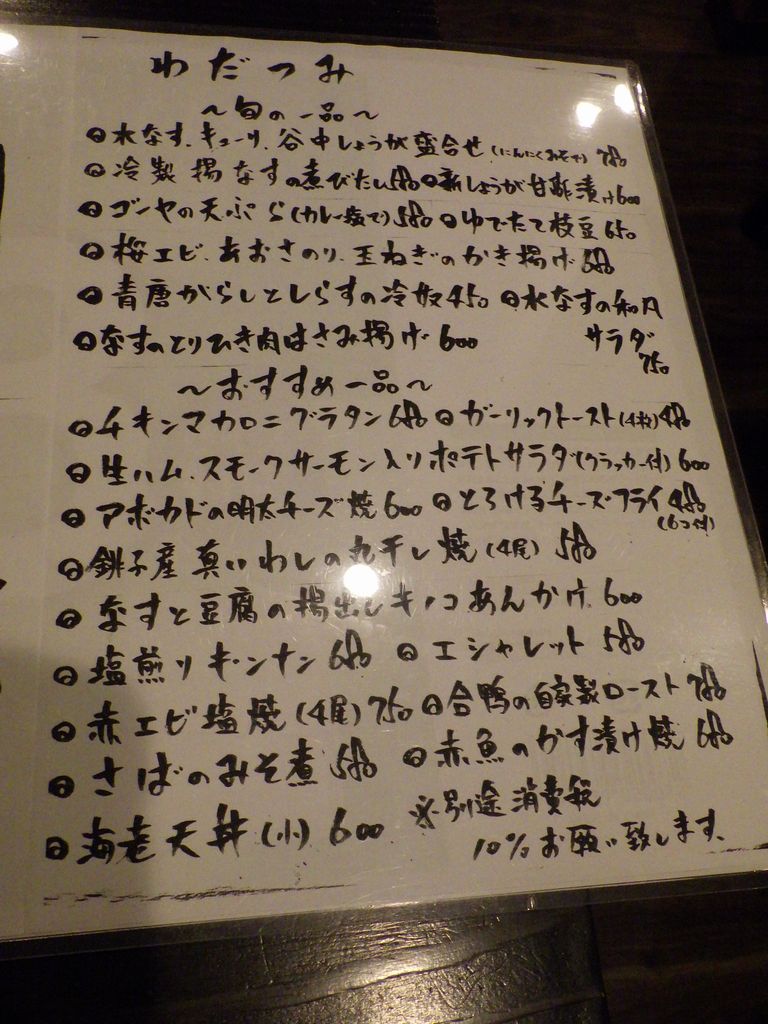 わだつみ
〜旬の一品〜
水なす、キューリ、谷中しょうが盛合せ(にんにくみそ付) 780
冷製揚なすの煮びたし580 新しょうが甘酢漬け600
ゴーヤの天ぷら(カレー塩で)580 ゆでたて枝豆650
桜エビ、あおさのり、玉ねぎのかき揚げ680
青唐がらしとしらすの冷奴450 水なすの和風
サラダ
750
なすのとりひき肉はさみ揚げ 600
〜おすすめ一品〜
チキンマカロニグラタン680 ガーリックトースト(4枚)480
生ハム、スモークサーモン入りポテトサラダ(クラッカー付)600
アボカドの明太チーズ焼600 とろけるチーズフライ480
(6コ付)
銚子産真いわしの丸干し焼(4尾) 580
なすと豆腐の揚出しキノコあんかけ 600
塩煎りギンナン 680 エシャレット 580
赤エビ塩焼(4尾)750 合鴨の自家製ロースト780
さばのみそ煮580 赤魚のかす漬け焼 680
海老天丼(小) 600 ※別途消費税
10%お願い致します。